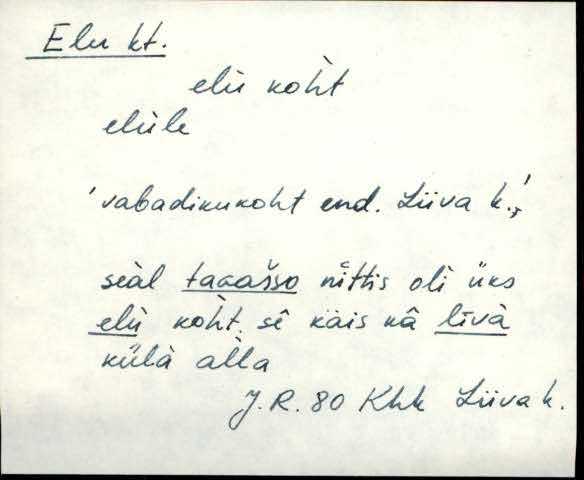 Elu kt.
elù koh̀t
elùle
'vabadikukoht end. Liiva k.',
seàl tagašso nìttis olì üks
elù koh̀t. sê käis kâ līvà
külà al̀la
J.R. 80 Khk Liiva k.